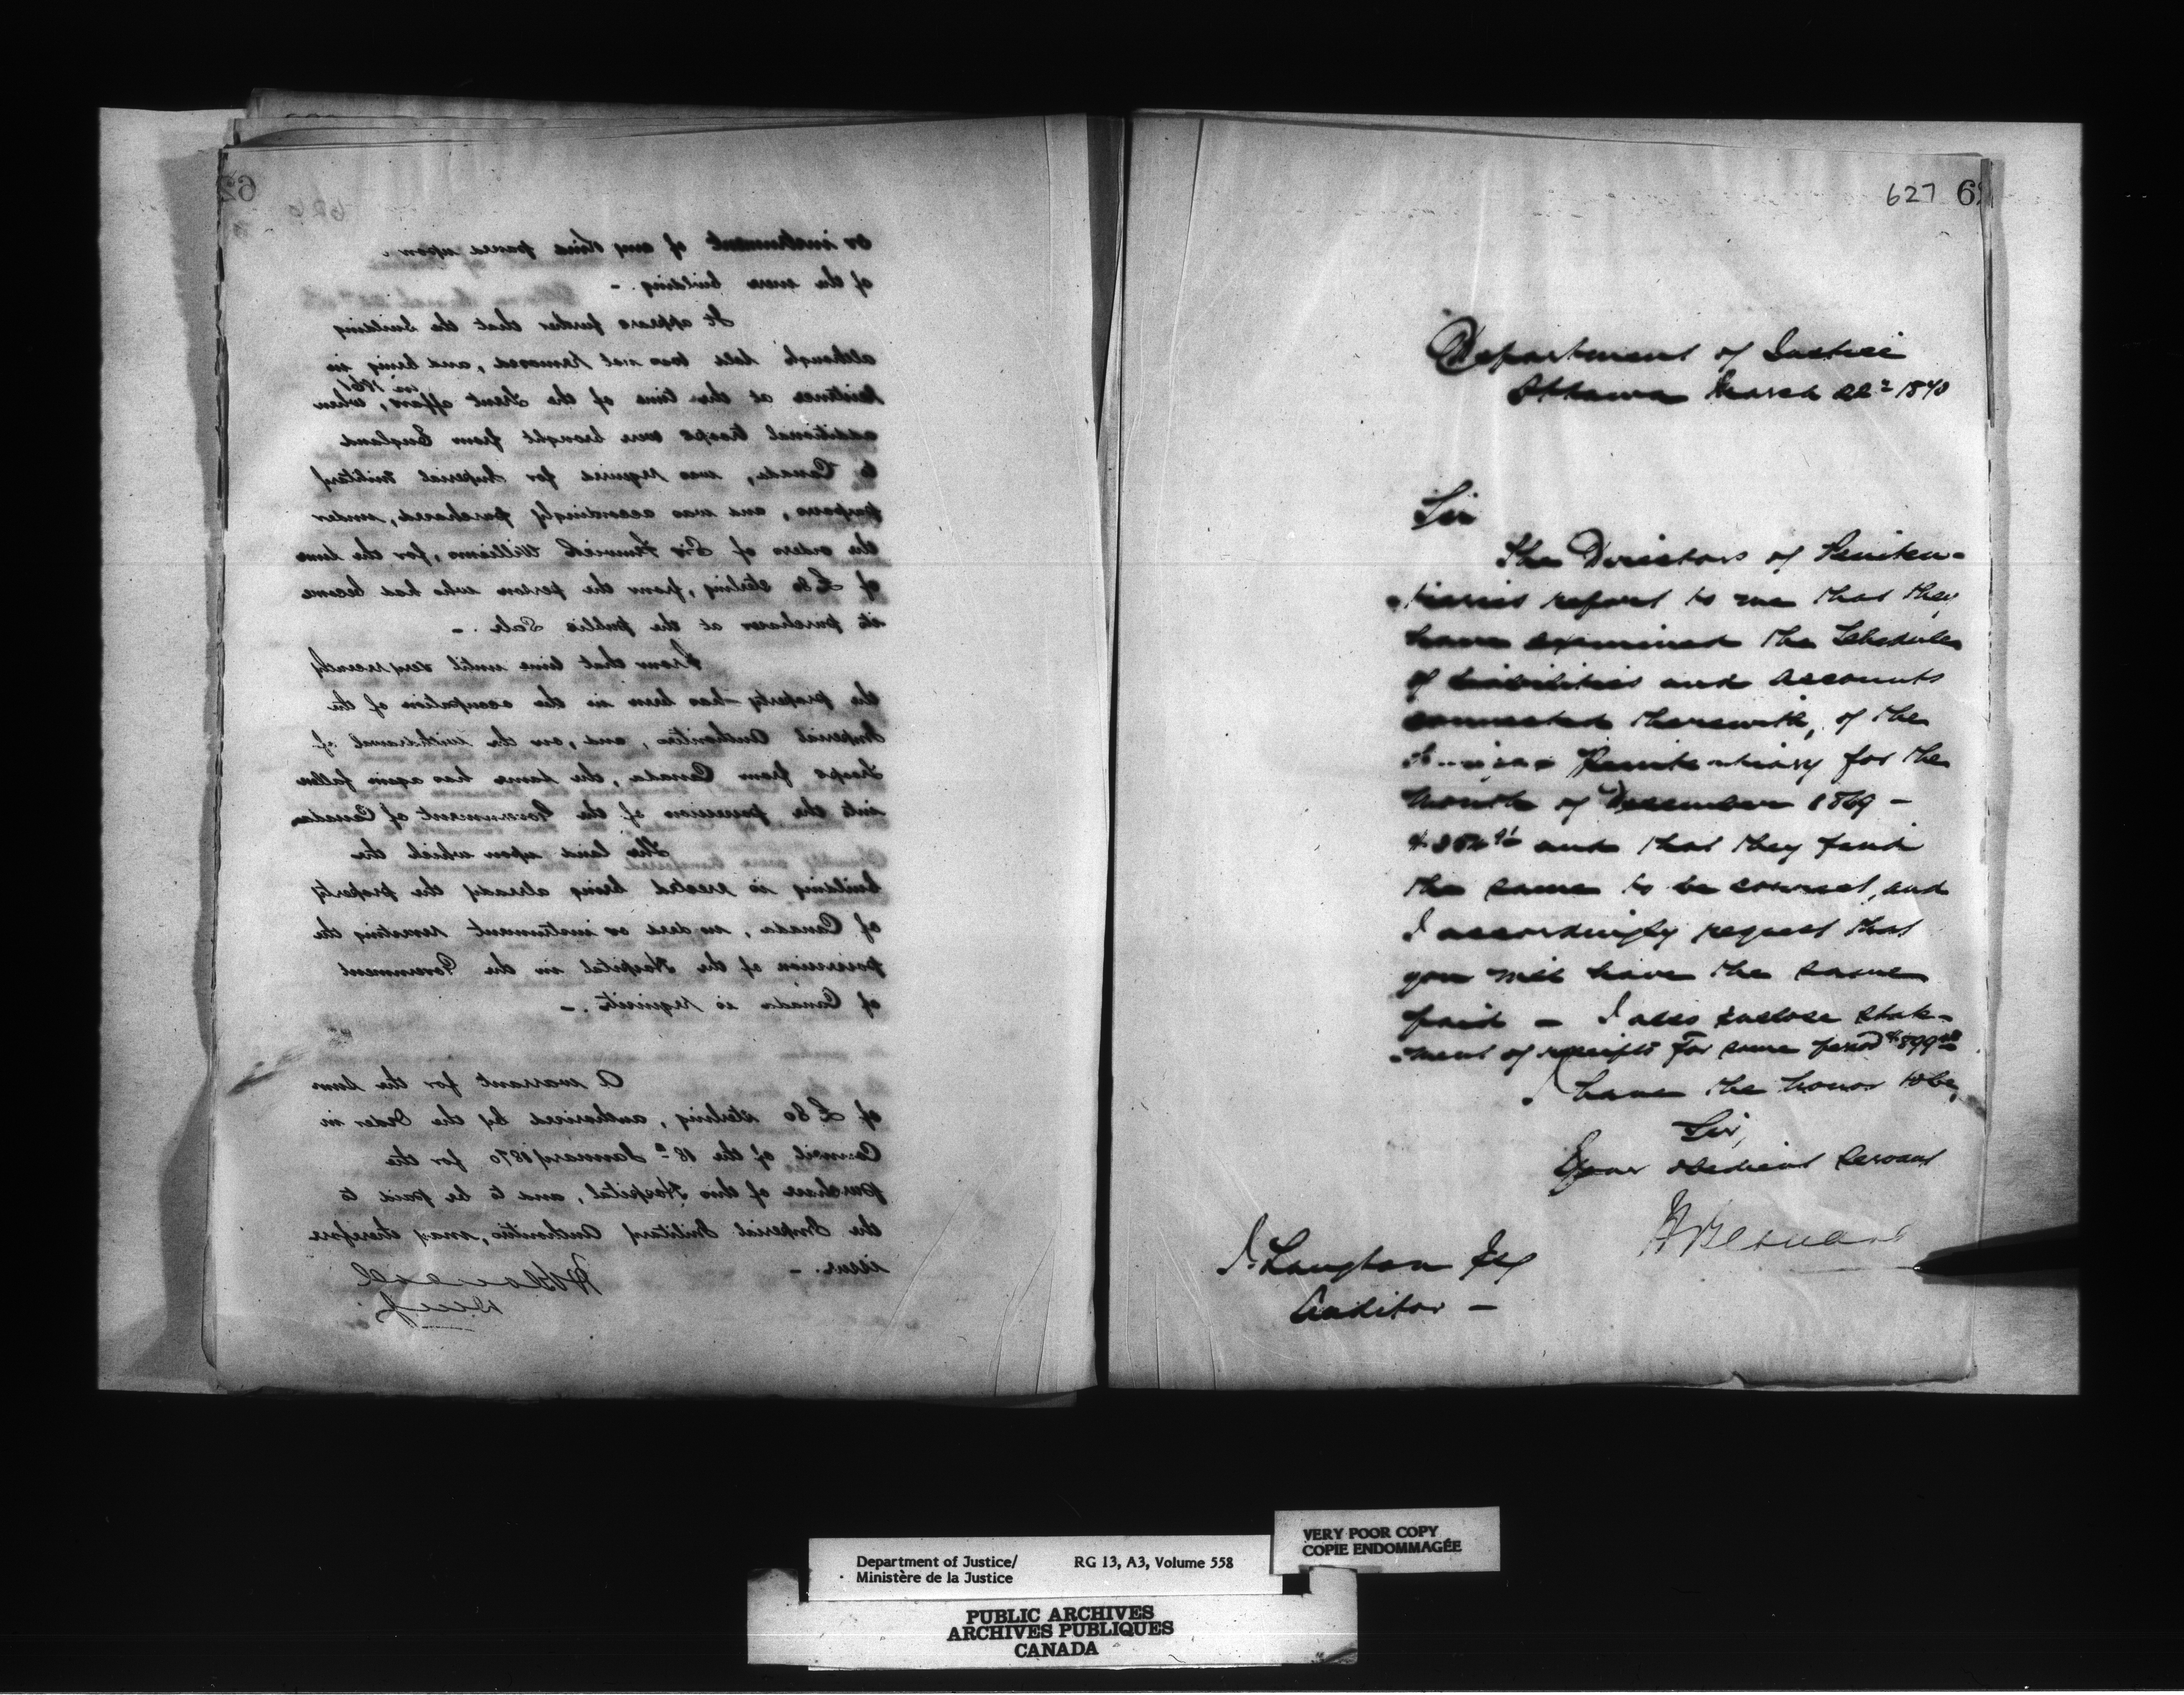 626
or instrument of any kind passed upon
of the mere building. -
It appears further that the building
although sold was not removed, and being in
existence at the time of the Trent affair, in 1861 when
additional troops were brought from England
to Canada, was required for Imperial Military
purposes, and was accordingly purchased, under
the orders of Sir Fenwick Williams, for the sum
of £80 sterling, from the person who had become
its purchaser at the public Sale. -
From that time until very recently
the property has been in the occupation of the
Imperial Authorities, and, on the withdrawal of
troops from Canada, the same has again fallen
into the possession of the Government of Canada
The land upon which the
building is erected being already the property
of Canada, no deed or instrument revesting the
possession of the Hospital in the Government
of Canada is requisite. -
A warrant for the sum
of £80 sterling, authorized by the Order in
Council of the 18th January 1870 for the
purchase of this Hospital, and to be paid to
the Imperial Military Authorities, may therefore
issue. -
H Bernard
627 62
Department of Justice
Ottawa March 22d 1870
Sir
The Directors of Peniten-
-tiaries report to me that they
have examined the Schedules
of liabilities and accounts
connected therewith, of the
Penitentiary for the
month of December 1869 -
and that they find
the same to be correct, and
I accordingly request that
you will have the same
paid - I also enclose state-
-ment of receipts for same period
I have the honor to be,
Sir,
Your obedient Servant
H Bernard
J. Langton Esq
Auditor -
VERY POOR COPY
COPIE ENDOMMAGÉE
Department of Justice/ RG 13, A3, Volume 558
Ministère de la Justice
PUBLIC ARCHIVES
ARCHIVES PUBLIQUES
CANADA